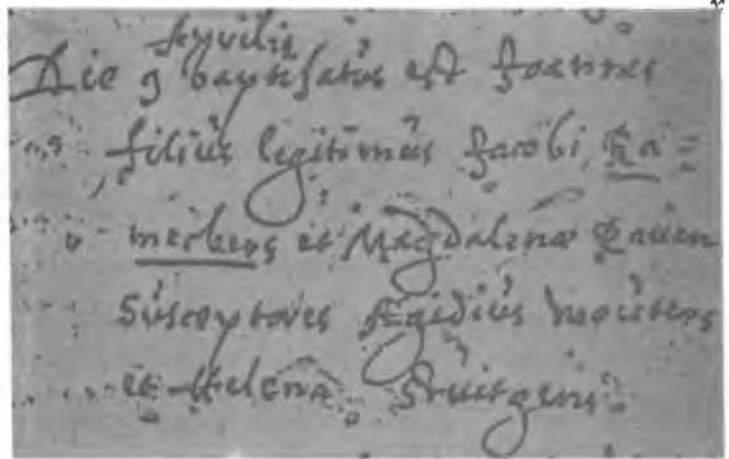 Aprilis
Die 9 baptisatus est Joannes
filius legitimus Jacobi Ra=
meckers et Magdalenæ
Susceptores Ægidius
et Helena